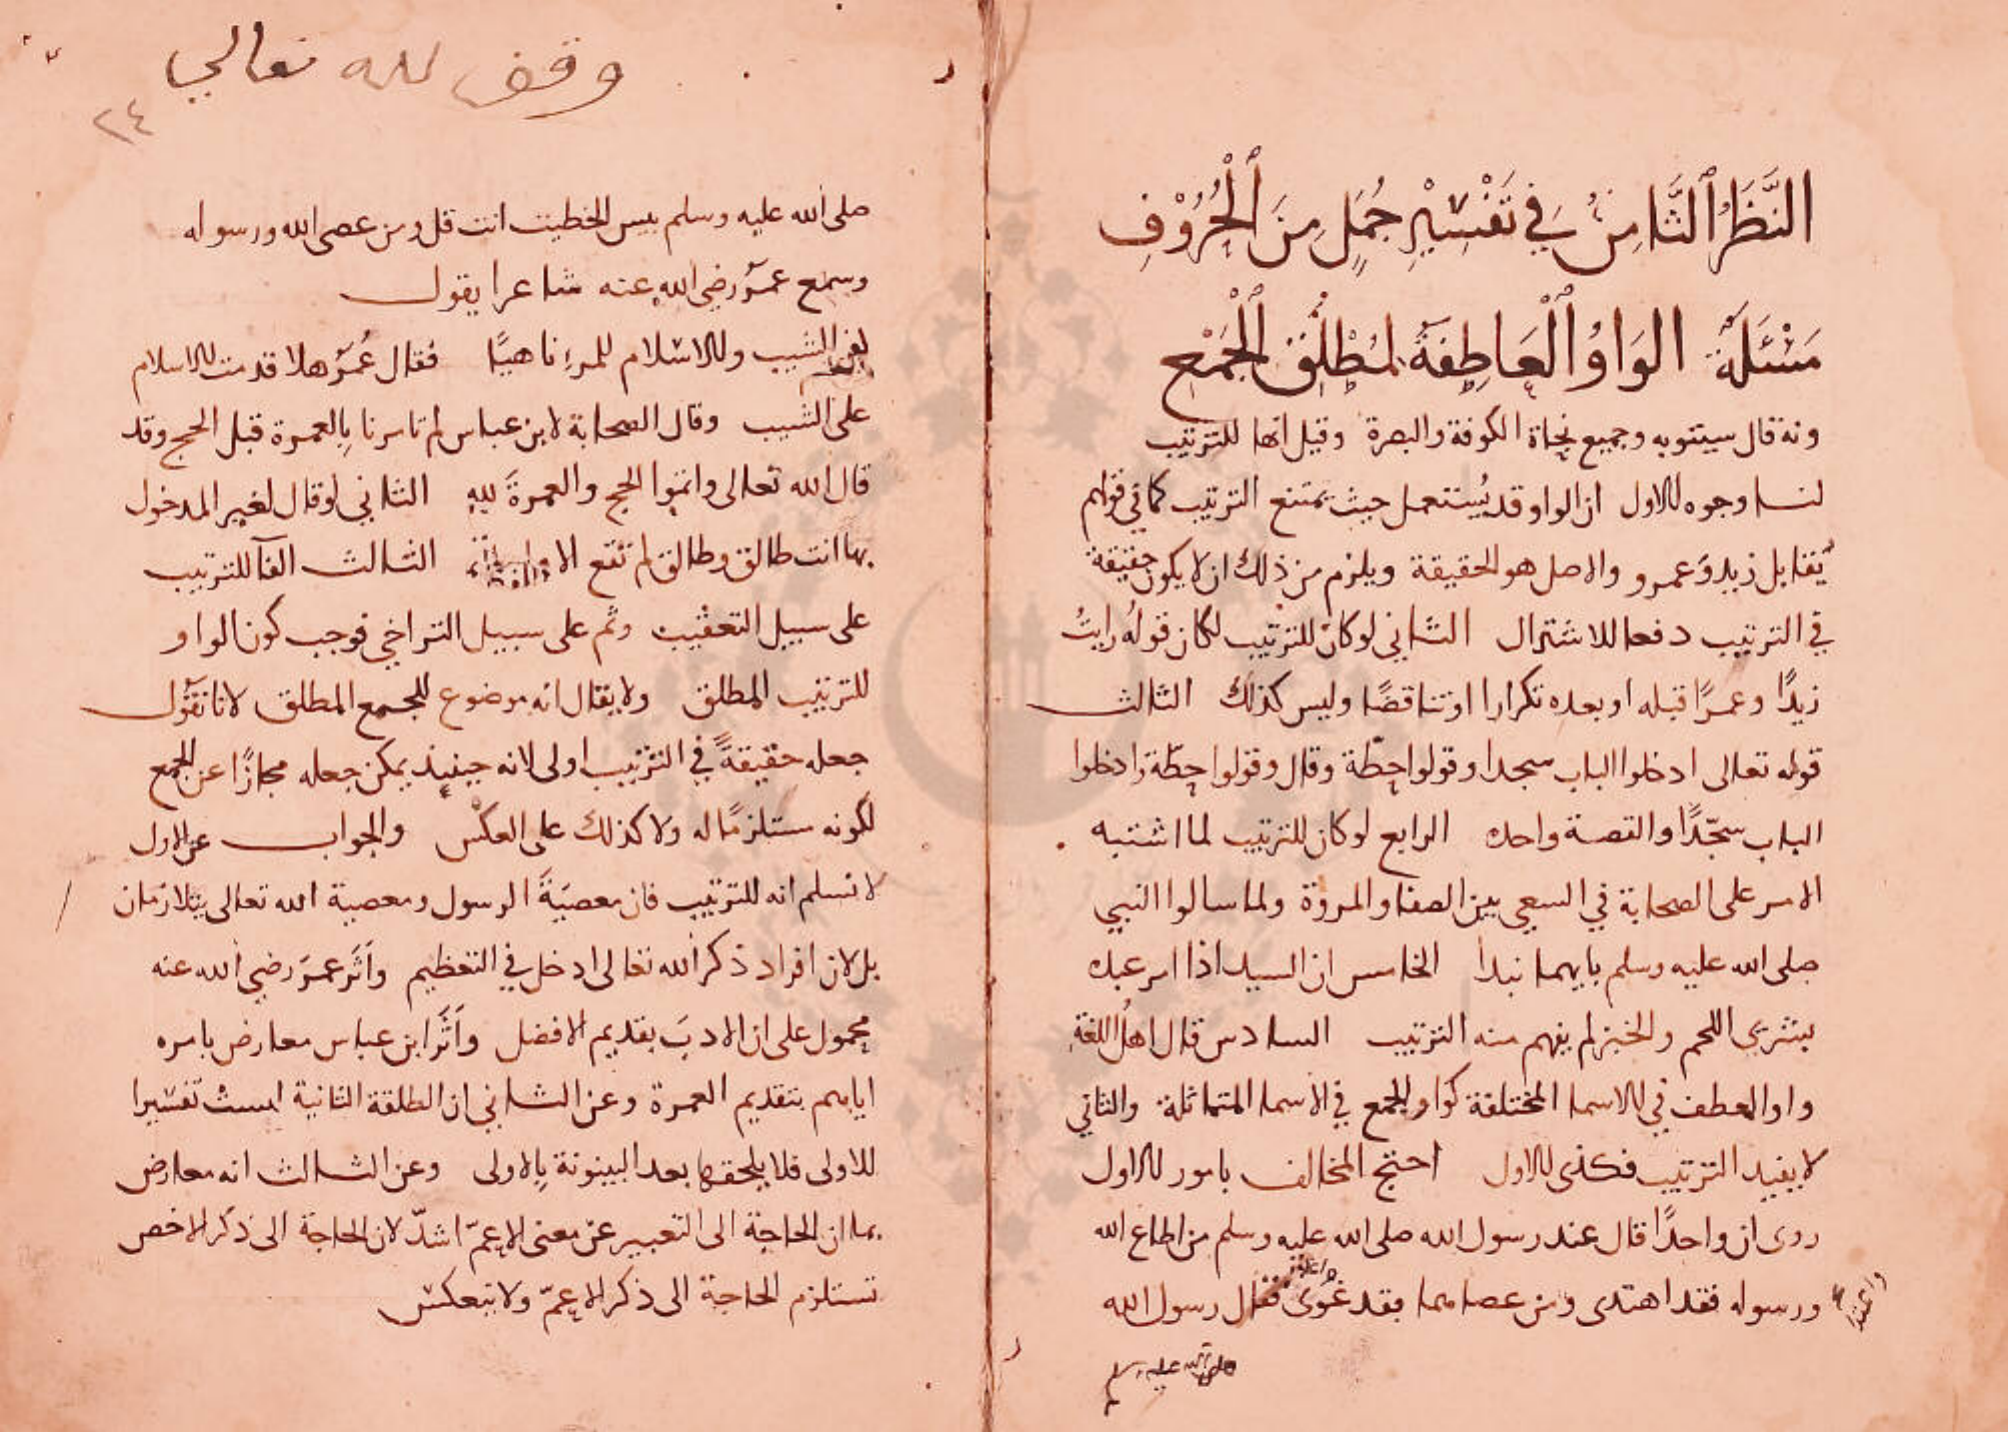 النَّظَرُ الثَّامِنُ فِي تَفْسِيْرِ جُمَلٍ مِنَ الْحُرُوْفِ
مَسْئَلَةٌ الوَاوُ الْعَاطِفَةُ لِمُطْلَقِ الْجَمْعِ
وبه قال سيبويه وجميع نحاة الكوفة والبصرة وقيل انها للترتيب
لنا وجوه الاول ان الواو قد يُستعمل حيث يمتنع الترتيب كما في قولهم
يَقابل زيد وَعمرو والاصل هو الحقيقة ويلزم من ذلك ان لا يكون حقيقة
في الترتيب دفعا للاشتراك الثاني لو كان للترتيب لكان قولُه رايتُ
زيدًا وعمرًا قبله او بعده تكرارا او تناقضًا وليس كذلك الثالث
قوله تعالى ادخلوا الباب سجدا وقولوا حِطّة وقال وقولوا حِطّة وادخلوا
الباب سجّدًا والقصة واحده الرابع لو كان للترتيب لما اشتبه
الامر على الصحابة في السعي بين الصفا والمروة ولما سالوا النبي
صلى الله عليه وسلم بايهما نبدا الخامس ان السيد اذا امر عبده
بشرى اللحم والخبز لم يفهم منه الترتيب السادس قال اهلُ اللغة
واو العطف في الاسما المختلفة كواو الجمع في الاسما المتماثلة والثاني
لا يفيد الترتيب فكذى الاول احتج المخالف بامور الاول
روى ان واحدًا قال عند رسول الله صلى الله عليه وسلم من اطاع الله
ورسوله فقد اهتدى ومن عصاهما فقد غوى فقال رسول الله
صلى الله عليه وسلم
وقف لله تعالى
٢٤
صلى الله عليه وسلم بيس الخطيب انت قل ومن عصى الله ورسوله
وسمع عمرُ رضي الله عنه شاعرا يقول
الشيب والاسلام للمرءِ ناهيًا فقال عُمَرُ هلا قدمت الاسلام
على الشيب وقال الصحابة لابن عباس لم تامرنا بِالعمرة قبل الحج وقد
قال الله تعالى واتموا الحج والعمرةَ للهِ الثاني لو قال لغير المدخول
بها انت طالق وطالق لم تقع الا الثالث الفآ للترتيب
على سبيل التعقيب وثم على سبيل التراخي فوجب كون الواو
للترتيب المطلق ولا يقال انه موضوع للجمع المطلق لانا نقول
جعله حقيقةً في الترتيب اولى لانه حينيذ يمكن جعله مجازًا عن الجمع
لكونه مستلزمًا له ولا كذلك على العكس والجواب عن الاول
لا نسلم انه للترتيب فان معصيَةَ الرسول ومعصية الله تعالى يتلازمان
بل لان افراد ذكر الله تعالى ادخل في التعظيم واَثَر عمرَ رضي الله عنه
محمول على ان الادبَ بقديم الافضل واَثَر ابن عباس معارض بامره
اياهم بتقديم العمرة وعن الثاني ان الطلقة الثانية ليست تفسيرا
للاولى فلا يلحقها بعد البينونة بِالاولى وعن الثالث انه معارض
بما ان الحاجة الى التعبير عن معنى الاعمّ اشدّ لان الحاجة الى ذكر الاخص
تستلزم الحاجة الى ذكر الاعمّ ولا ينعكس